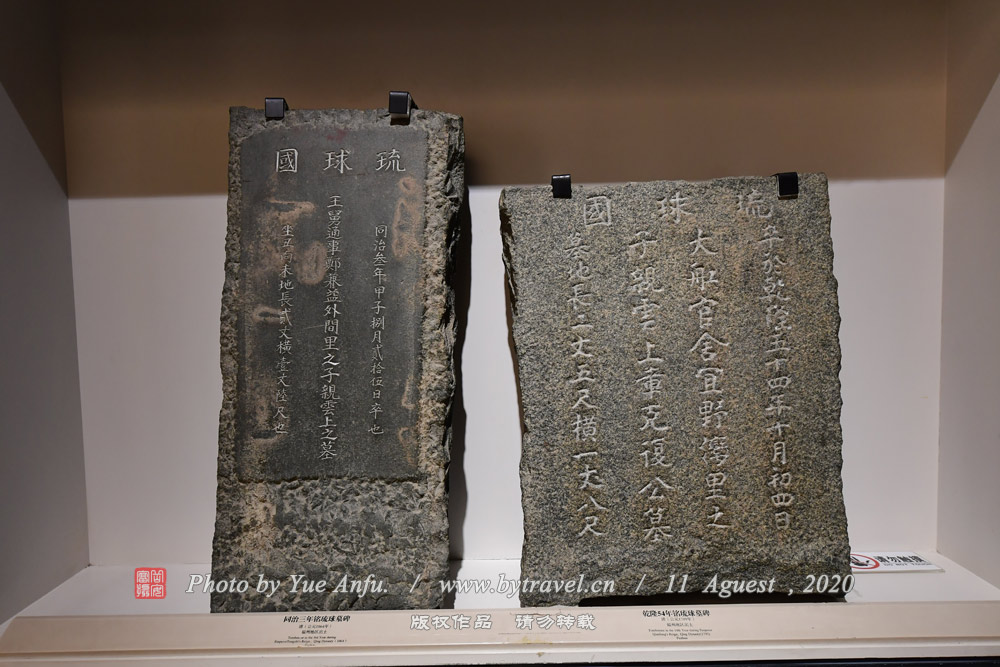 琉球國
同治叁年甲子捌月貳拾伍日卒也
王舅通事鄭秉益外間里之子親雲上之墓
坐丑向未地長貳丈橫壹丈陸尺也
琉球國
卒於乾隆五十四年十月初四日
大船官舍宜野灣里之
子親雲上章克復公墓
墓地長二丈五尺橫一丈八尺
请勿触摸
Photo by Yue Anfu. / www.bytravel.cn / 11 Aguest , 2020
同治三年铭琉球墓碑
福州地区出土
乾隆54年铭琉球墓碑
福州地区出土
版权作品 请勿转载